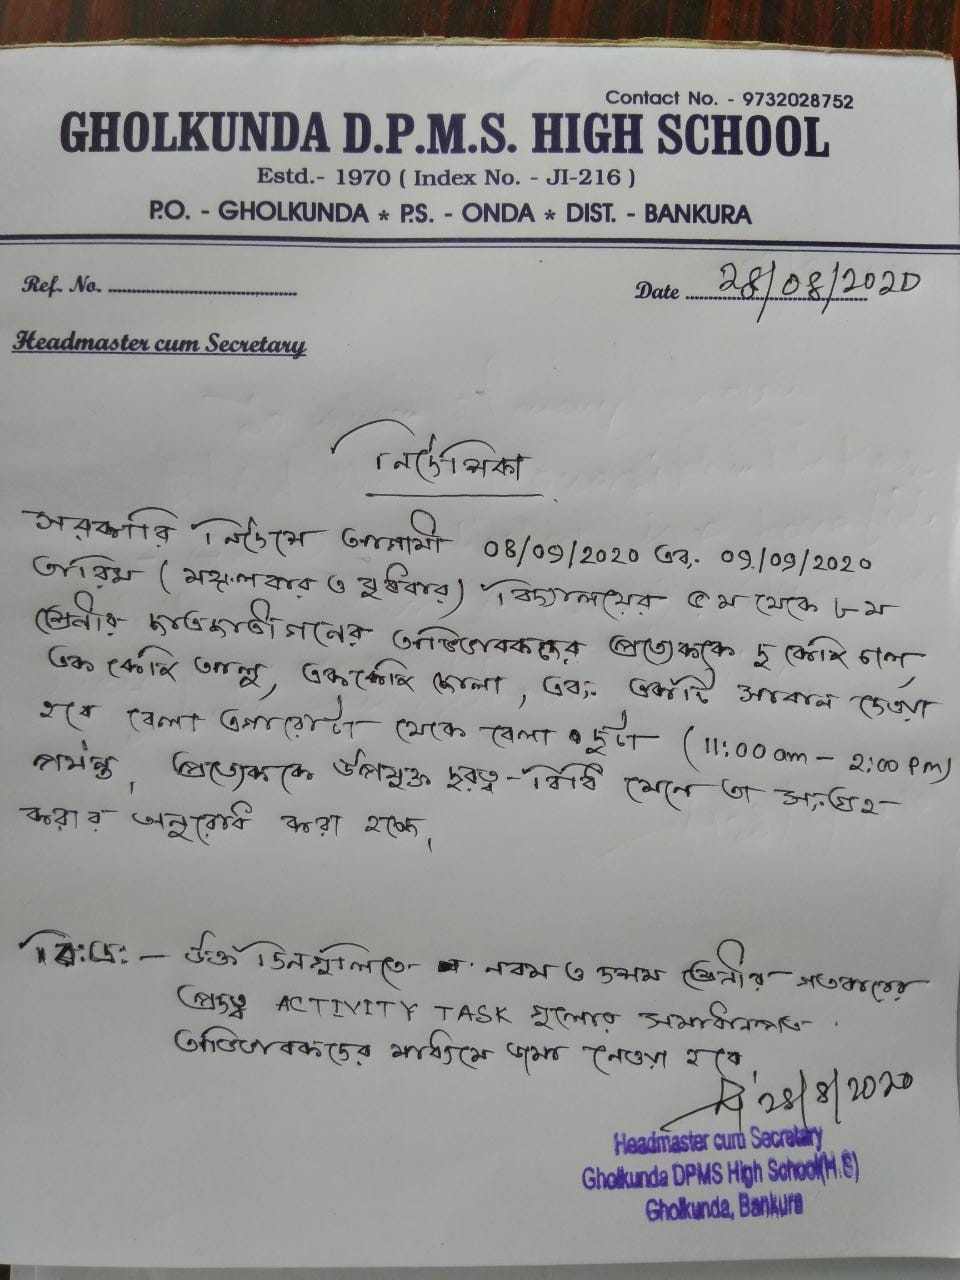 Contact No. - 9732028752
GHOLKUNDA D.P.M.S. HIGH SCHOOL
Estd.- 1970 ( Index No. - JI-216 )
P.O. - GHOLKUNDA * P.S. - ONDA * DIST. - BANKURA
Ref. No. ........................................ Date 28/08/2020
Headmaster cum Secretary
নির্দেশিকা
সরকারি নির্দেশে আগামী 08/09/2020 এবং 09/09/2020
তারিখ (মঙ্গলবার ও বুধবার) বিদ্যালয়ের ৫ম থেকে ৮ম
শ্রেনীর ছাত্রছাত্রীগনের অভিভাবকদের প্রত্যেককে দু কেজি চাল,
এক কেজি আলু, এককেজি ছোলা, এবং একটি সাবান দেওয়া
হবে বেলা এগারোটা থেকে বেলা দুটা (11:00 am - 2:00 pm)
পর্যন্ত, প্রত্যেককে উপযুক্ত দূরত্ব-বিধি মেনে তা সংগ্রহ
করার অনুরোধ করা হচ্ছে,
বি:দ্র: - উক্ত দিনগুলিতে নবম ও দশম শ্রেনীর গতবারের
প্রদত্ত ACTIVITY TASK গুলোর সমাধানপত্র
অভিভাবকদের মাধ্যমে জমা নেওয়া হবে,
28/8/2020
Headmaster cum Secretary
Gholkunda DPMS High School(H.S)
Gholkunda, Bankura